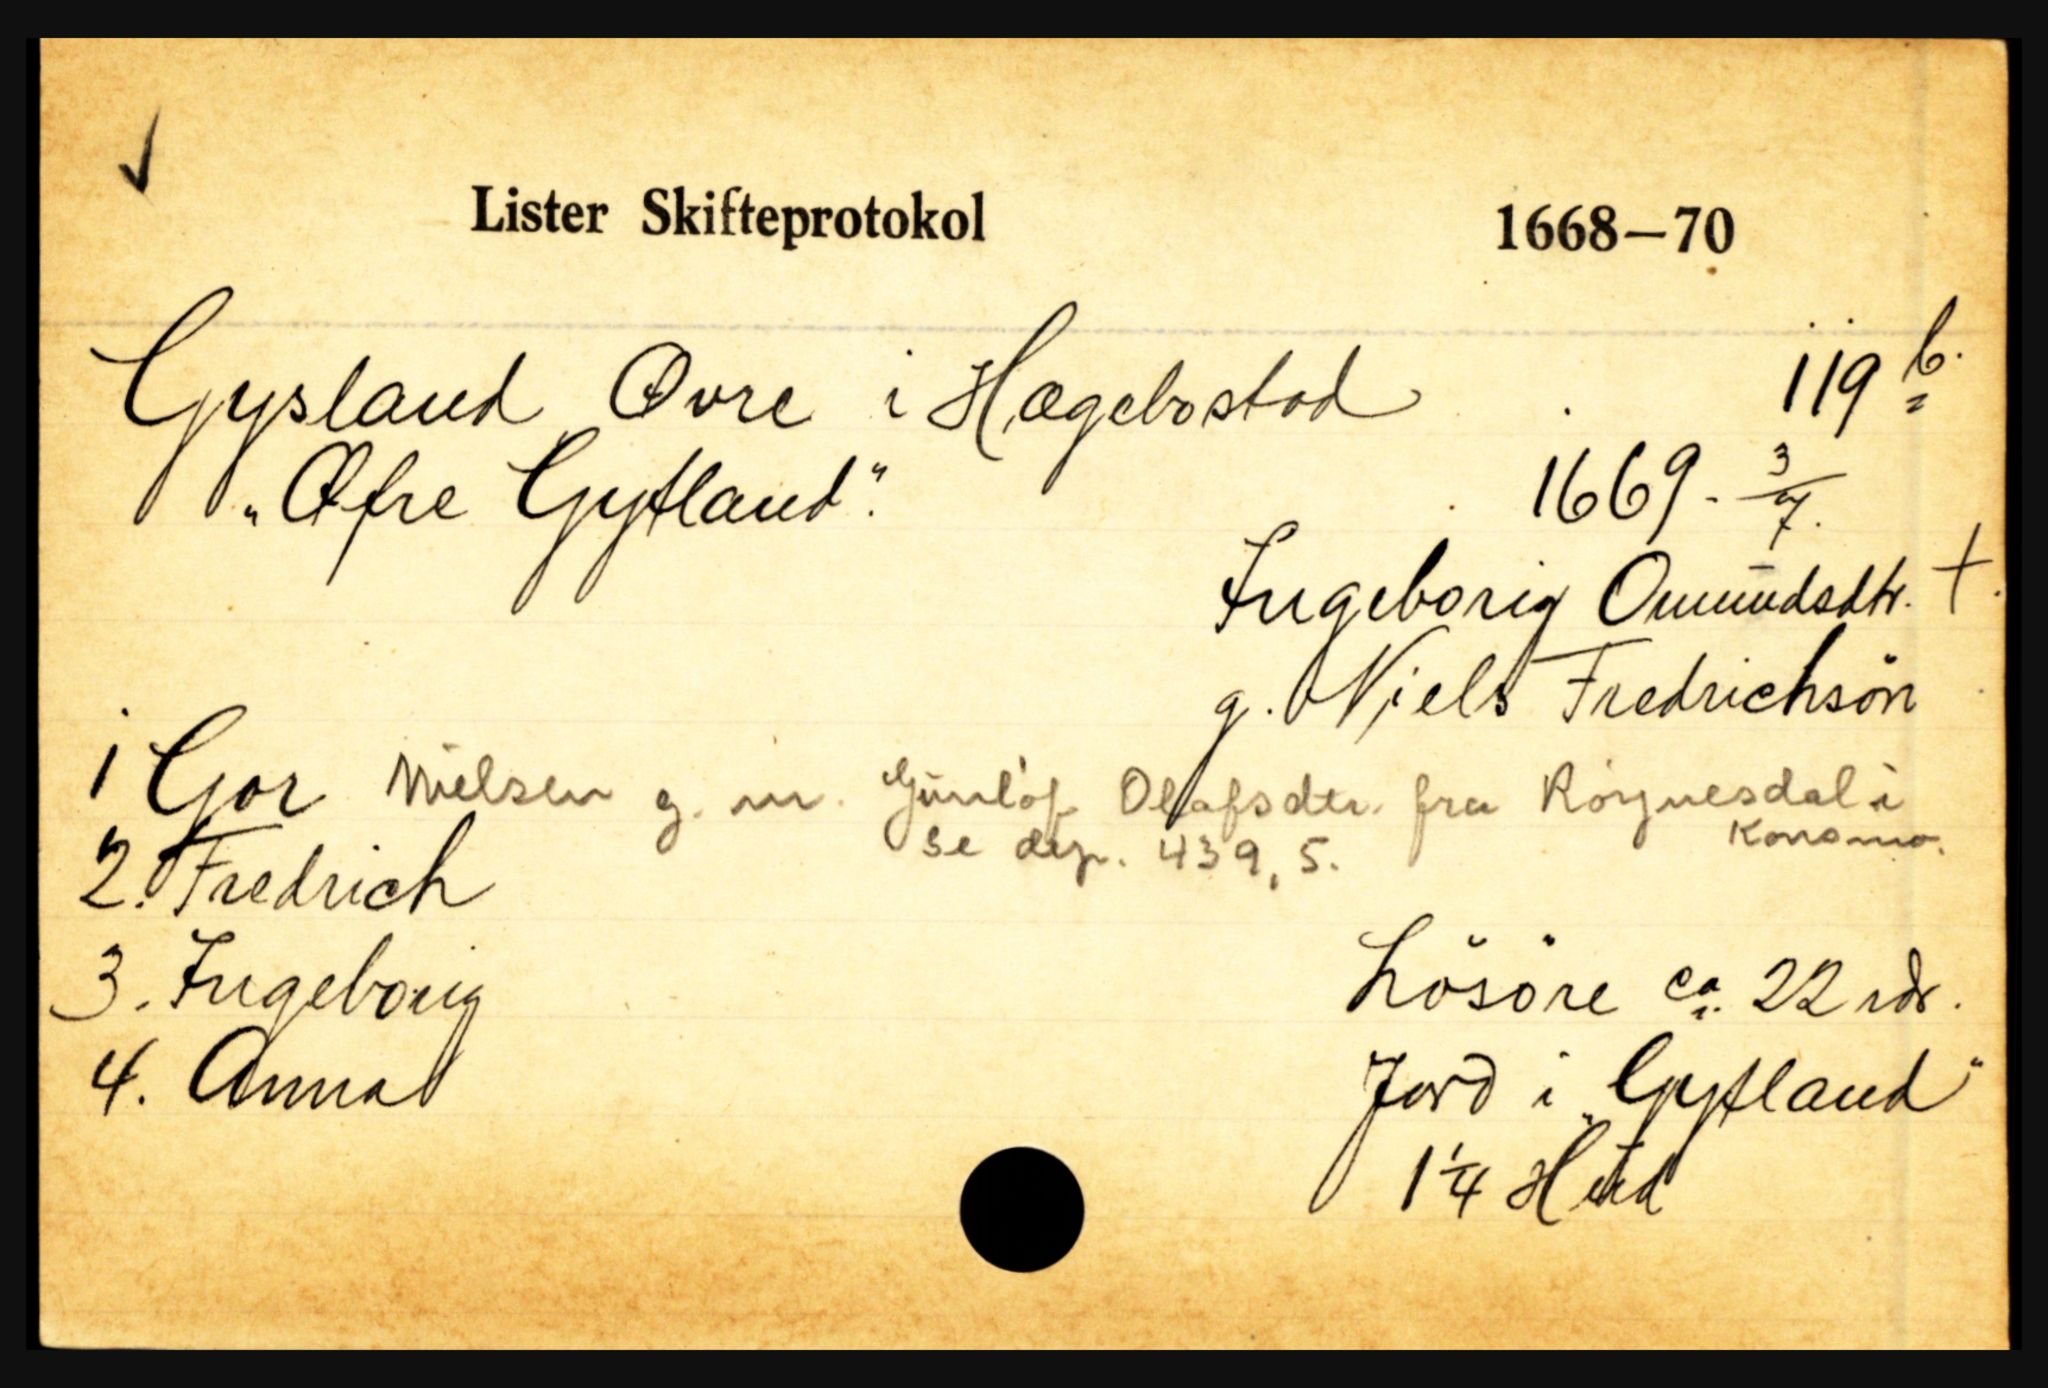 Lister Skifteprotokol 1668—70
Gysland Øvre i Hægebostad 119 b.
„Øfre Gytland". 1669. 3/7.
Ingeborig Omundsdtr. +.
g. Niels Fredrichsön
1 Gor Nielsen g. m. Gunløf Olafsdtr. fra Röynesdal i
Konsmo.
se dep. 439, 5.
2. Fredrich
3. Ingeborig
4. Anna
Lösöre ca. 22 rdr.
Jord i „Gytland"
1 1/4 Hud